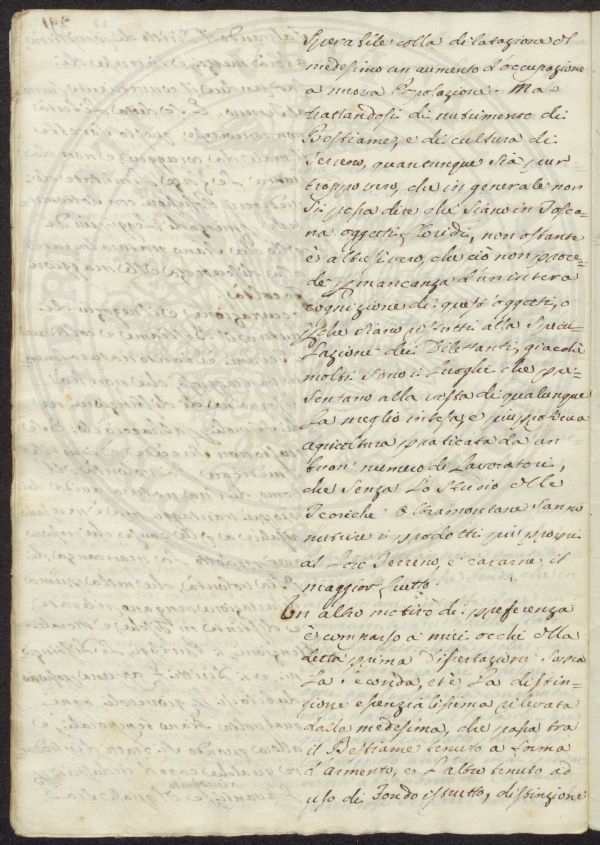 sperabile colla dilatazione del
medesimo un aumento d'occupazione
a nuova Popolazione. Ma
trattandosi di nutrimento di
Bestiame, e di cultura di
Terreno, quantunque sia pur
troppo vero, che in generale non
si possa dire che siano in Tosca-
na oggetti floridi, non ostante
è altresì vero, che ciò non proce-
de p mancanza d'un'intera
cognizione di questi oggetti, o
pche siano ristretti alla specu-
lazione dei Dilettanti, giacchè
molti sono i Luoghi che pre-
sentano alla vista di qualunque
la meglio intesa, e più proficua
agricoltura praticata da un
buon numero di Lavoratori,
che senza lo studio delle
Teoriche Oltramontane sanno
nutrire i prodotti più proprj
al loro Terreno, e cavarne il
maggior frutto.
Un altro motivo di preferenza
è comparso a miei occhi della
detta prima Dissertazione sopra
la seconda, ed è la distin-
zione essenzialissima rilevata
dalla medesima, che passa tra
il Bestiame tenuto a forma
d'armento, e l'altro tenuto ad
uso di Fondo istrutto, distinzione